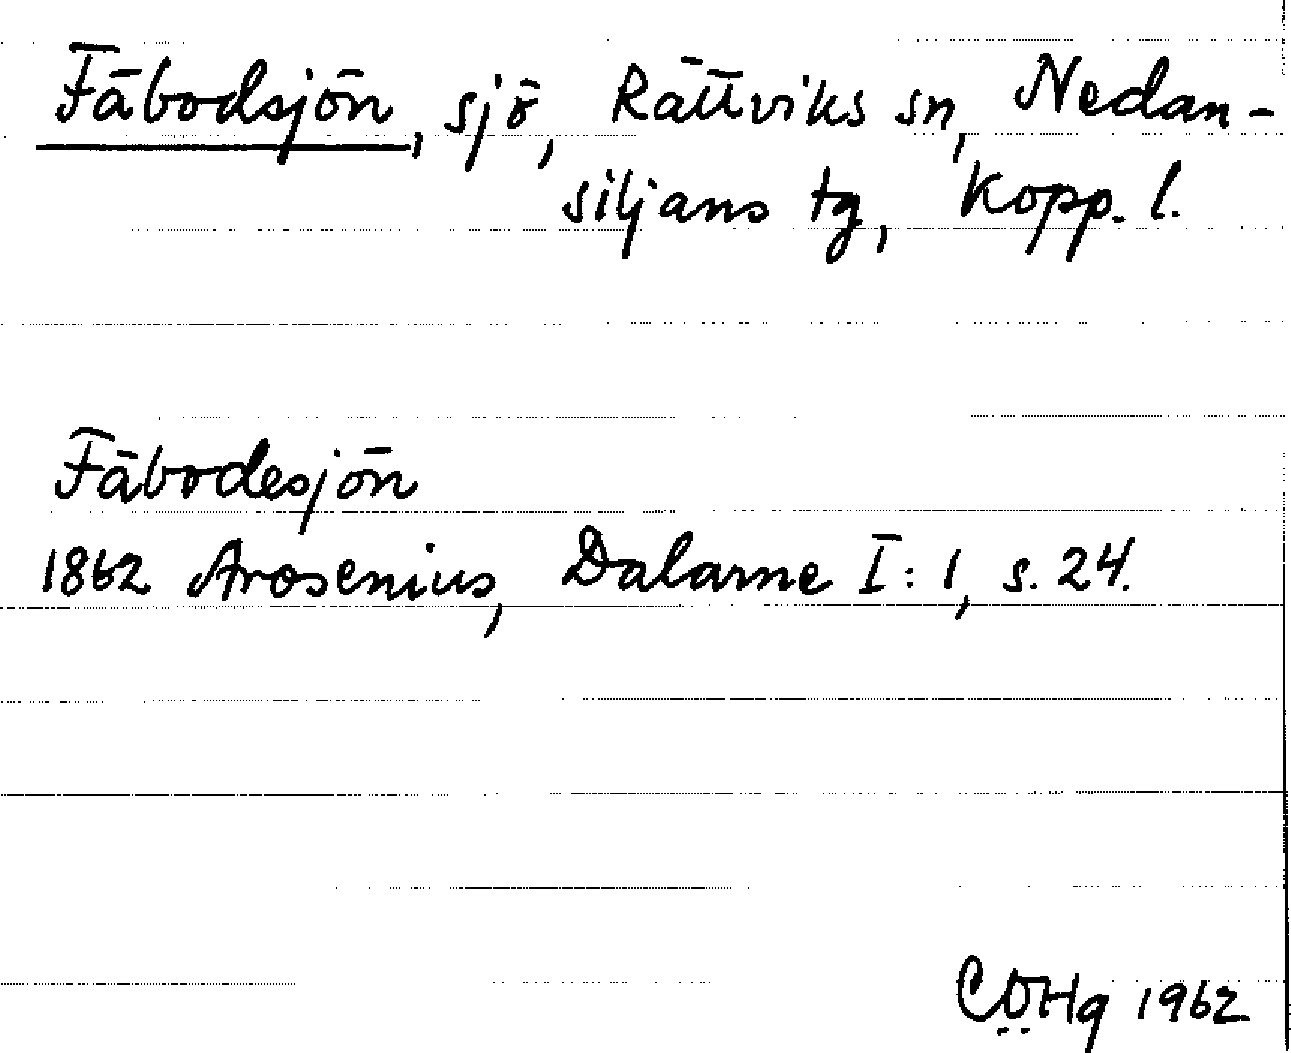 Fäbodsjön, sjö, Rättviks sn, Nedan-
siljans tg, Kopp. l.
Fäbodesjön
1862 Arosenius, Dalarne I: 1, s. 24.
CÖHg 1962